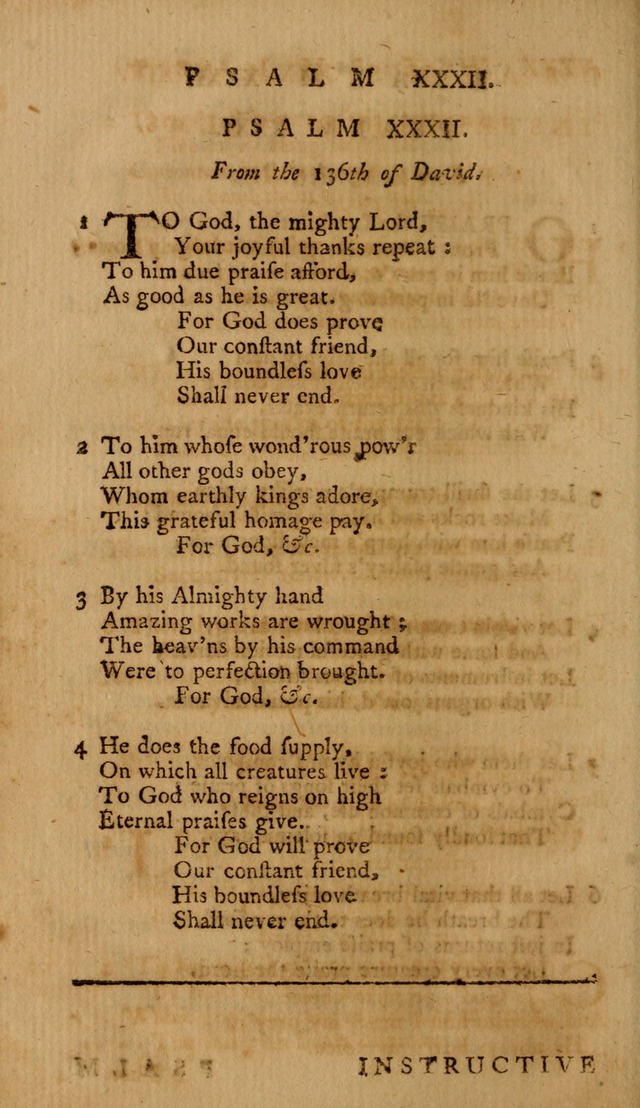 PSALM XXXII.
PSALM XXXII.
From the 136th of David.
1 TO God, the mighty Lord,
Your joyful thanks repeat :
To him due praiſe afford,
As good as he is great.
For God does prove
Our conſtant friend,
His boundleſs love
Shall never end.
2 To him whoſe wond'rous pow'r
All other gods obey,
Whom earthly kings adore,
This grateful homage pay.
For God, &c.
3 By his Almighty hand
Amazing works are wrought ;
The heav'ns by his command
Were to perfection brought.
For God, &c.
4 He does the food ſupply,
On which all creatures live :
To God who reigns on high
Eternal praiſes give.
For God will prove
Our conſtant friend,
His boundleſs love
Shall never end.
INSTRUCTIVE